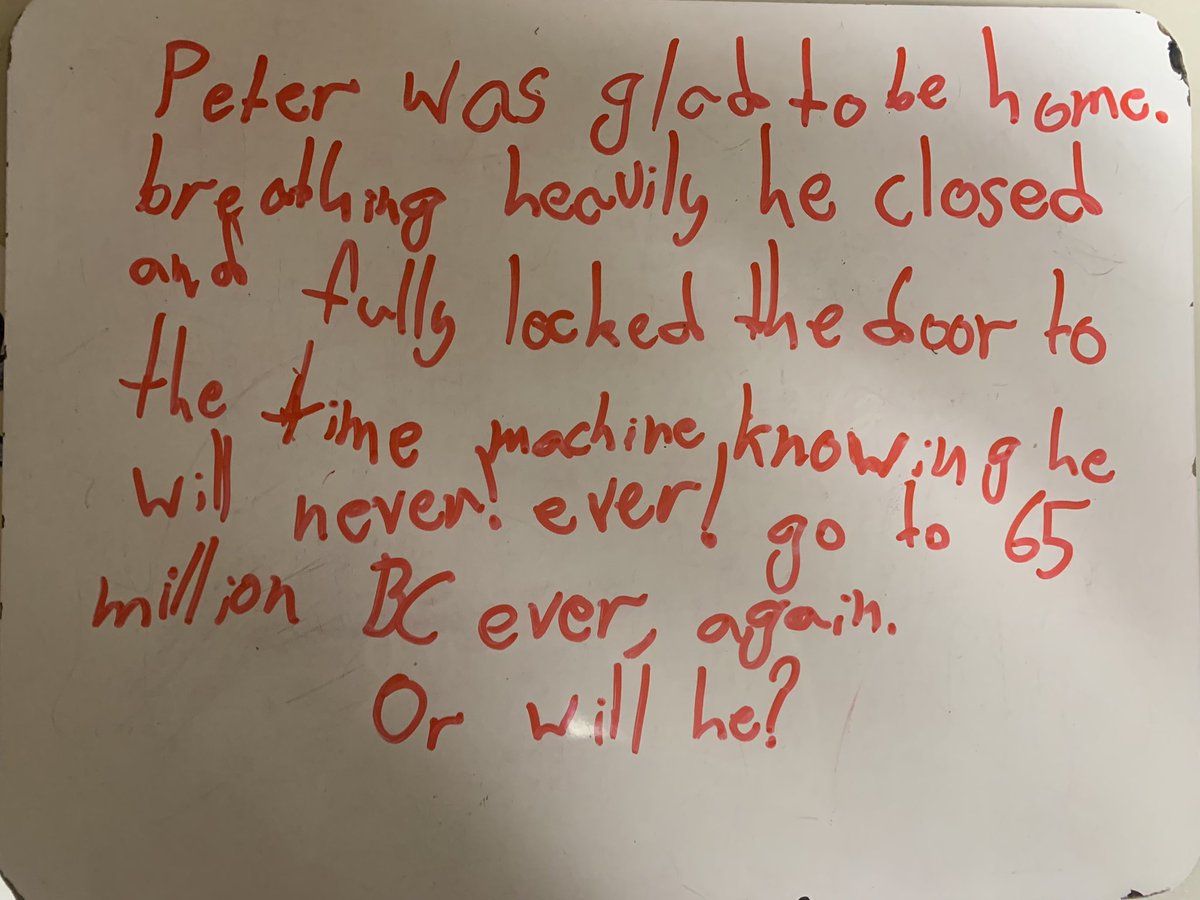 Peter was glad to be home.
breathing heavily he closed
and fully locked the door to
the time machine, knowing he
will never! ever! go to 65
million BC ever, again.
Or will he?